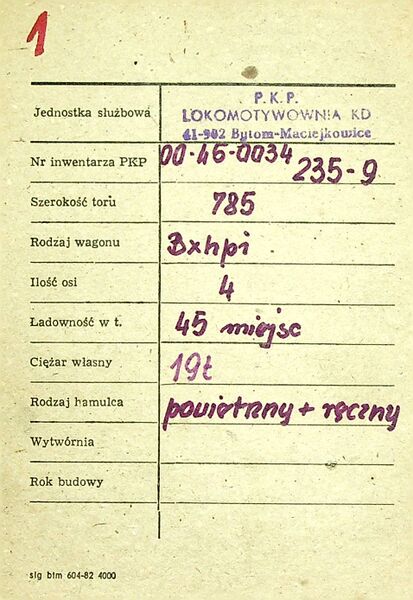 1
Jednostka służbowa P.K.P.
LOKOMOTYWOWNIA KD
41-902 Bytom-Maciejkowice
Nr inwentarza PKP 00-46-0034
235-9
Szerokość toru 785
Rodzaj wagonu Bxhpi
Ilość osi 4
Ładowność w t. 45 miejsc
Ciężar własny 19t
Rodzaj hamulca powietrzny + ręczny
Wytwórnia
Rok budowy
slg btm 604-82 4000